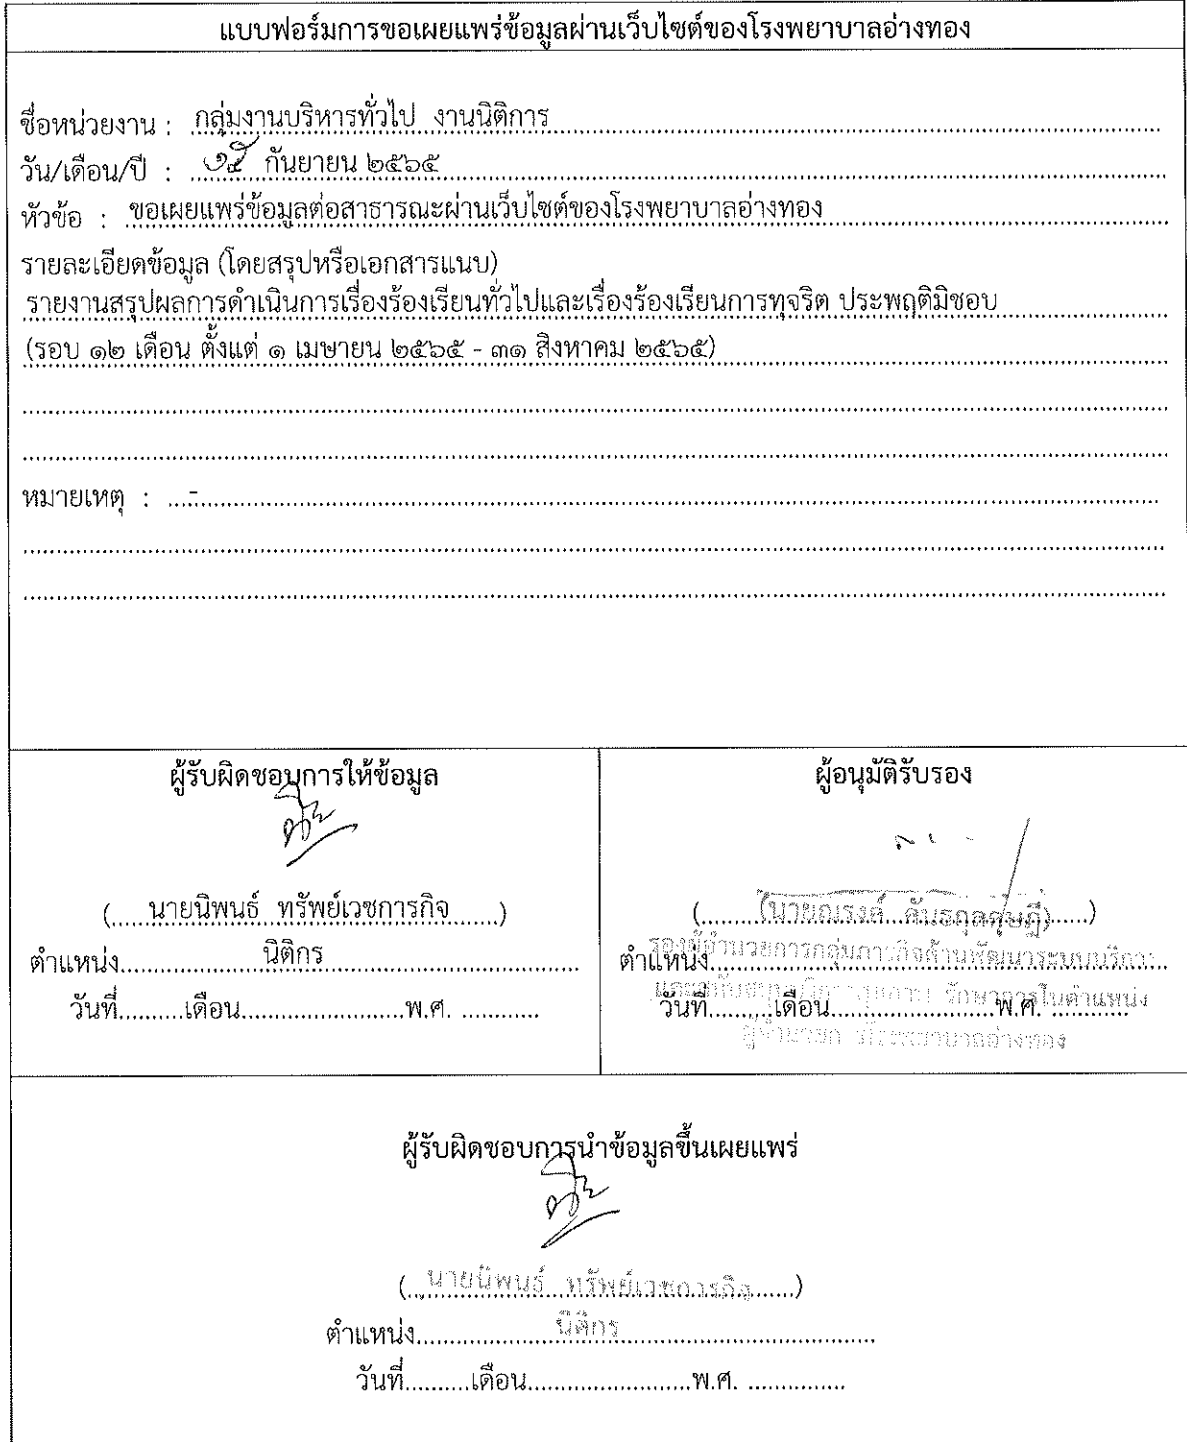 แบบฟอร์มการขอเผยแพร่ข้อมูลผ่านเว็บไซต์ของโรงพยาบาลอ่างทอง
ชื่อหน่วยงาน : กลุ่มงานบริหารทั่วไป งานนิติการ
วัน/เดือน/ปี : ๑๕ กันยายน ๒๕๖๕
หัวข้อ : ขอเผยแพร่ข้อมูลต่อสาธารณะผ่านเว็บไซต์ของโรงพยาบาลอ่างทอง
รายละเอียดข้อมูล (โดยสรุปหรือเอกสารแนบ)
รายงานสรุปผลการดำเนินการเรื่องร้องเรียนทั่วไปและเรื่องร้องเรียนการทุจริต ประพฤติมิชอบ
(รอบ ๑๒ เดือน ตั้งแต่ ๑ เมษายน ๒๕๖๕ - ๓๑ สิงหาคม ๒๕๖๕)
หมายเหตุ : ...-...
ผู้รับผิดชอบการให้ข้อมูล
(.....นายนิพนธ์ ทรัพย์เวชการกิจ.......)
ตำแหน่ง...............นิติกร...............
วันที่..........เดือน.........................พ.ศ. ............
ผู้อนุมัติรับรอง
(นายณรงค์
ตำแหน่ง รองผู้อำนวยการกลุ่มภารกิจด้านพัฒนาระบบบริการ
รักษาการในตำแหน่ง
วันที่..........เดือน.........................พ.ศ. ............
ผู้อำนวยการโรงพยาบาลอ่างทอง
ผู้รับผิดชอบการนำข้อมูลขึ้นเผยแพร่
(..นายนิพนธ์ ทรัพย์เวชการกิจ......)
ตำแหน่ง...............นิติกร...............
วันที่.........เดือน.........................พ.ศ. ...............